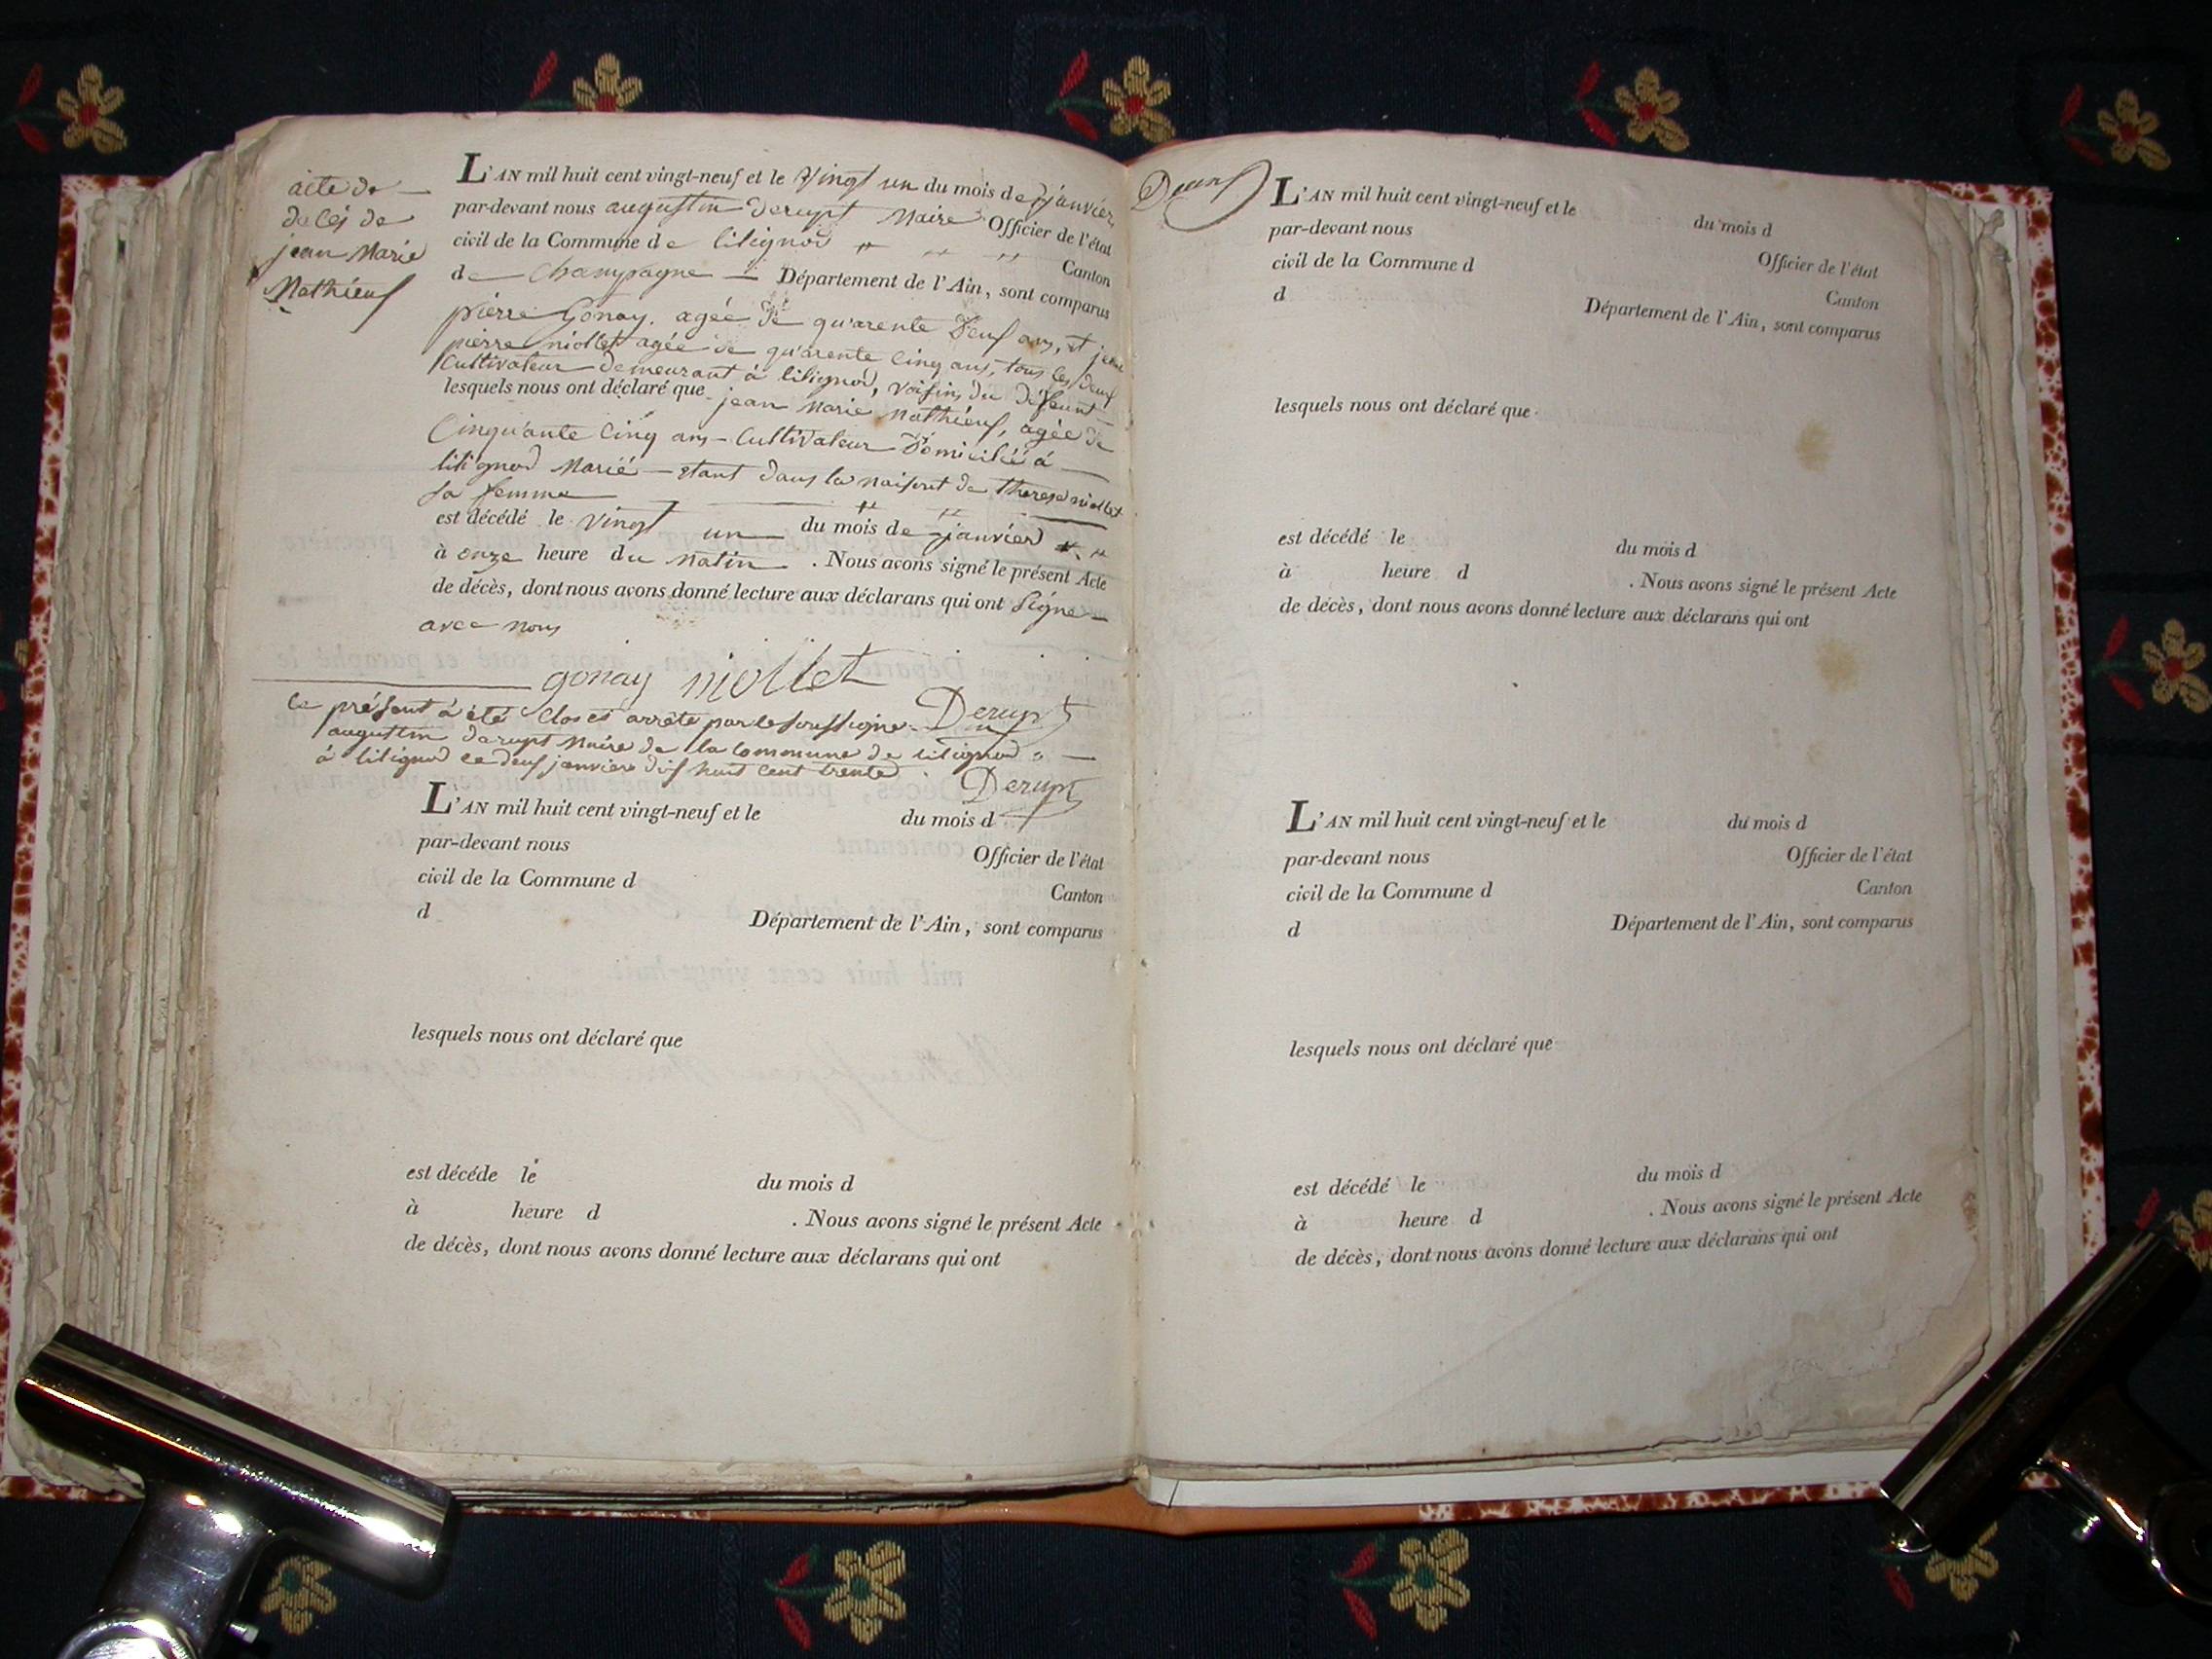 acte de
décés de
jean Marie
Mathieux
L'AN mil huit cent vingt-neuf et le Vingt un du mois de janvier
par-devant nous augustin Derupt Maire Officier de l'état
civil de la Commune de lilignod " " " Canton
de Champagne Département de l'Ain, sont comparus
pierre Gonay. agée de quarente Deux ans, et jean
pierre niollet agée de quarente cinq ans, tous les deux
Cultivateur Demeurant à lilignod, voisins du défeunt
lesquels nous ont déclaré que jean Marie Mathieux, agée de
Cinquante Cinq ans - Cultivateur Domicilié à
lilignod Marié - etant dans la maison de therese niollet
sa femme
est décédé le vingt un du mois de janvier " "
à onze heure du Matin . Nous avons signé le présent Acte
de décès, dont nous avons donné lecture aux déclarans qui ont Signe
avec nous
gonay niollet
Derupt
Le présent à été Clos et arrêté par le soussigne
augustin derupt Maire de la Commune de lilignod
à lilignod ce deux janvier dix huit cent trente
Derupt
L'AN mil huit cent vingt-neuf et le du mois d
par-devant nous Officier de l'état
civil de la Commune d Canton
d Département de l'Ain, sont comparus
lesquels nous ont déclaré que
est décéde le du mois d
à heure d . Nous avons signé le présent Acte
de décès, dont nous avons donné lecture aux déclarans qui ont
L'AN mil huit cent vingt-neuf et le du mois d
par-devant nous Officier de l'état
civil de la Commune d Canton
d Département de l'Ain, sont comparus
lesquels nous ont déclaré que
est décédé le du mois d
à heure d . Nous avons signé le présent Acte
de décès, dont nous avons donné lecture aux déclarans qui ont
L'AN mil huit cent vingt-neuf et le du mois d
par-devant nous Officier de l'état
civil de la Commune d Canton
d Département de l'Ain, sont comparus
lesquels nous ont déclaré que
est décédé le du mois d
à heure d . Nous avons signé le présent Acte
de décès, dont nous avons donné lecture aux déclarans qui ont